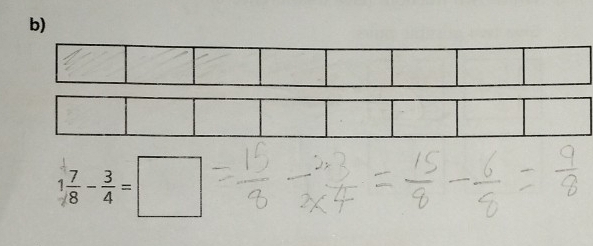 b)
1 7/8 - 3/4 = = 15/8 - 2×3/2×4 = 15/8 - 6/8 = 9/8